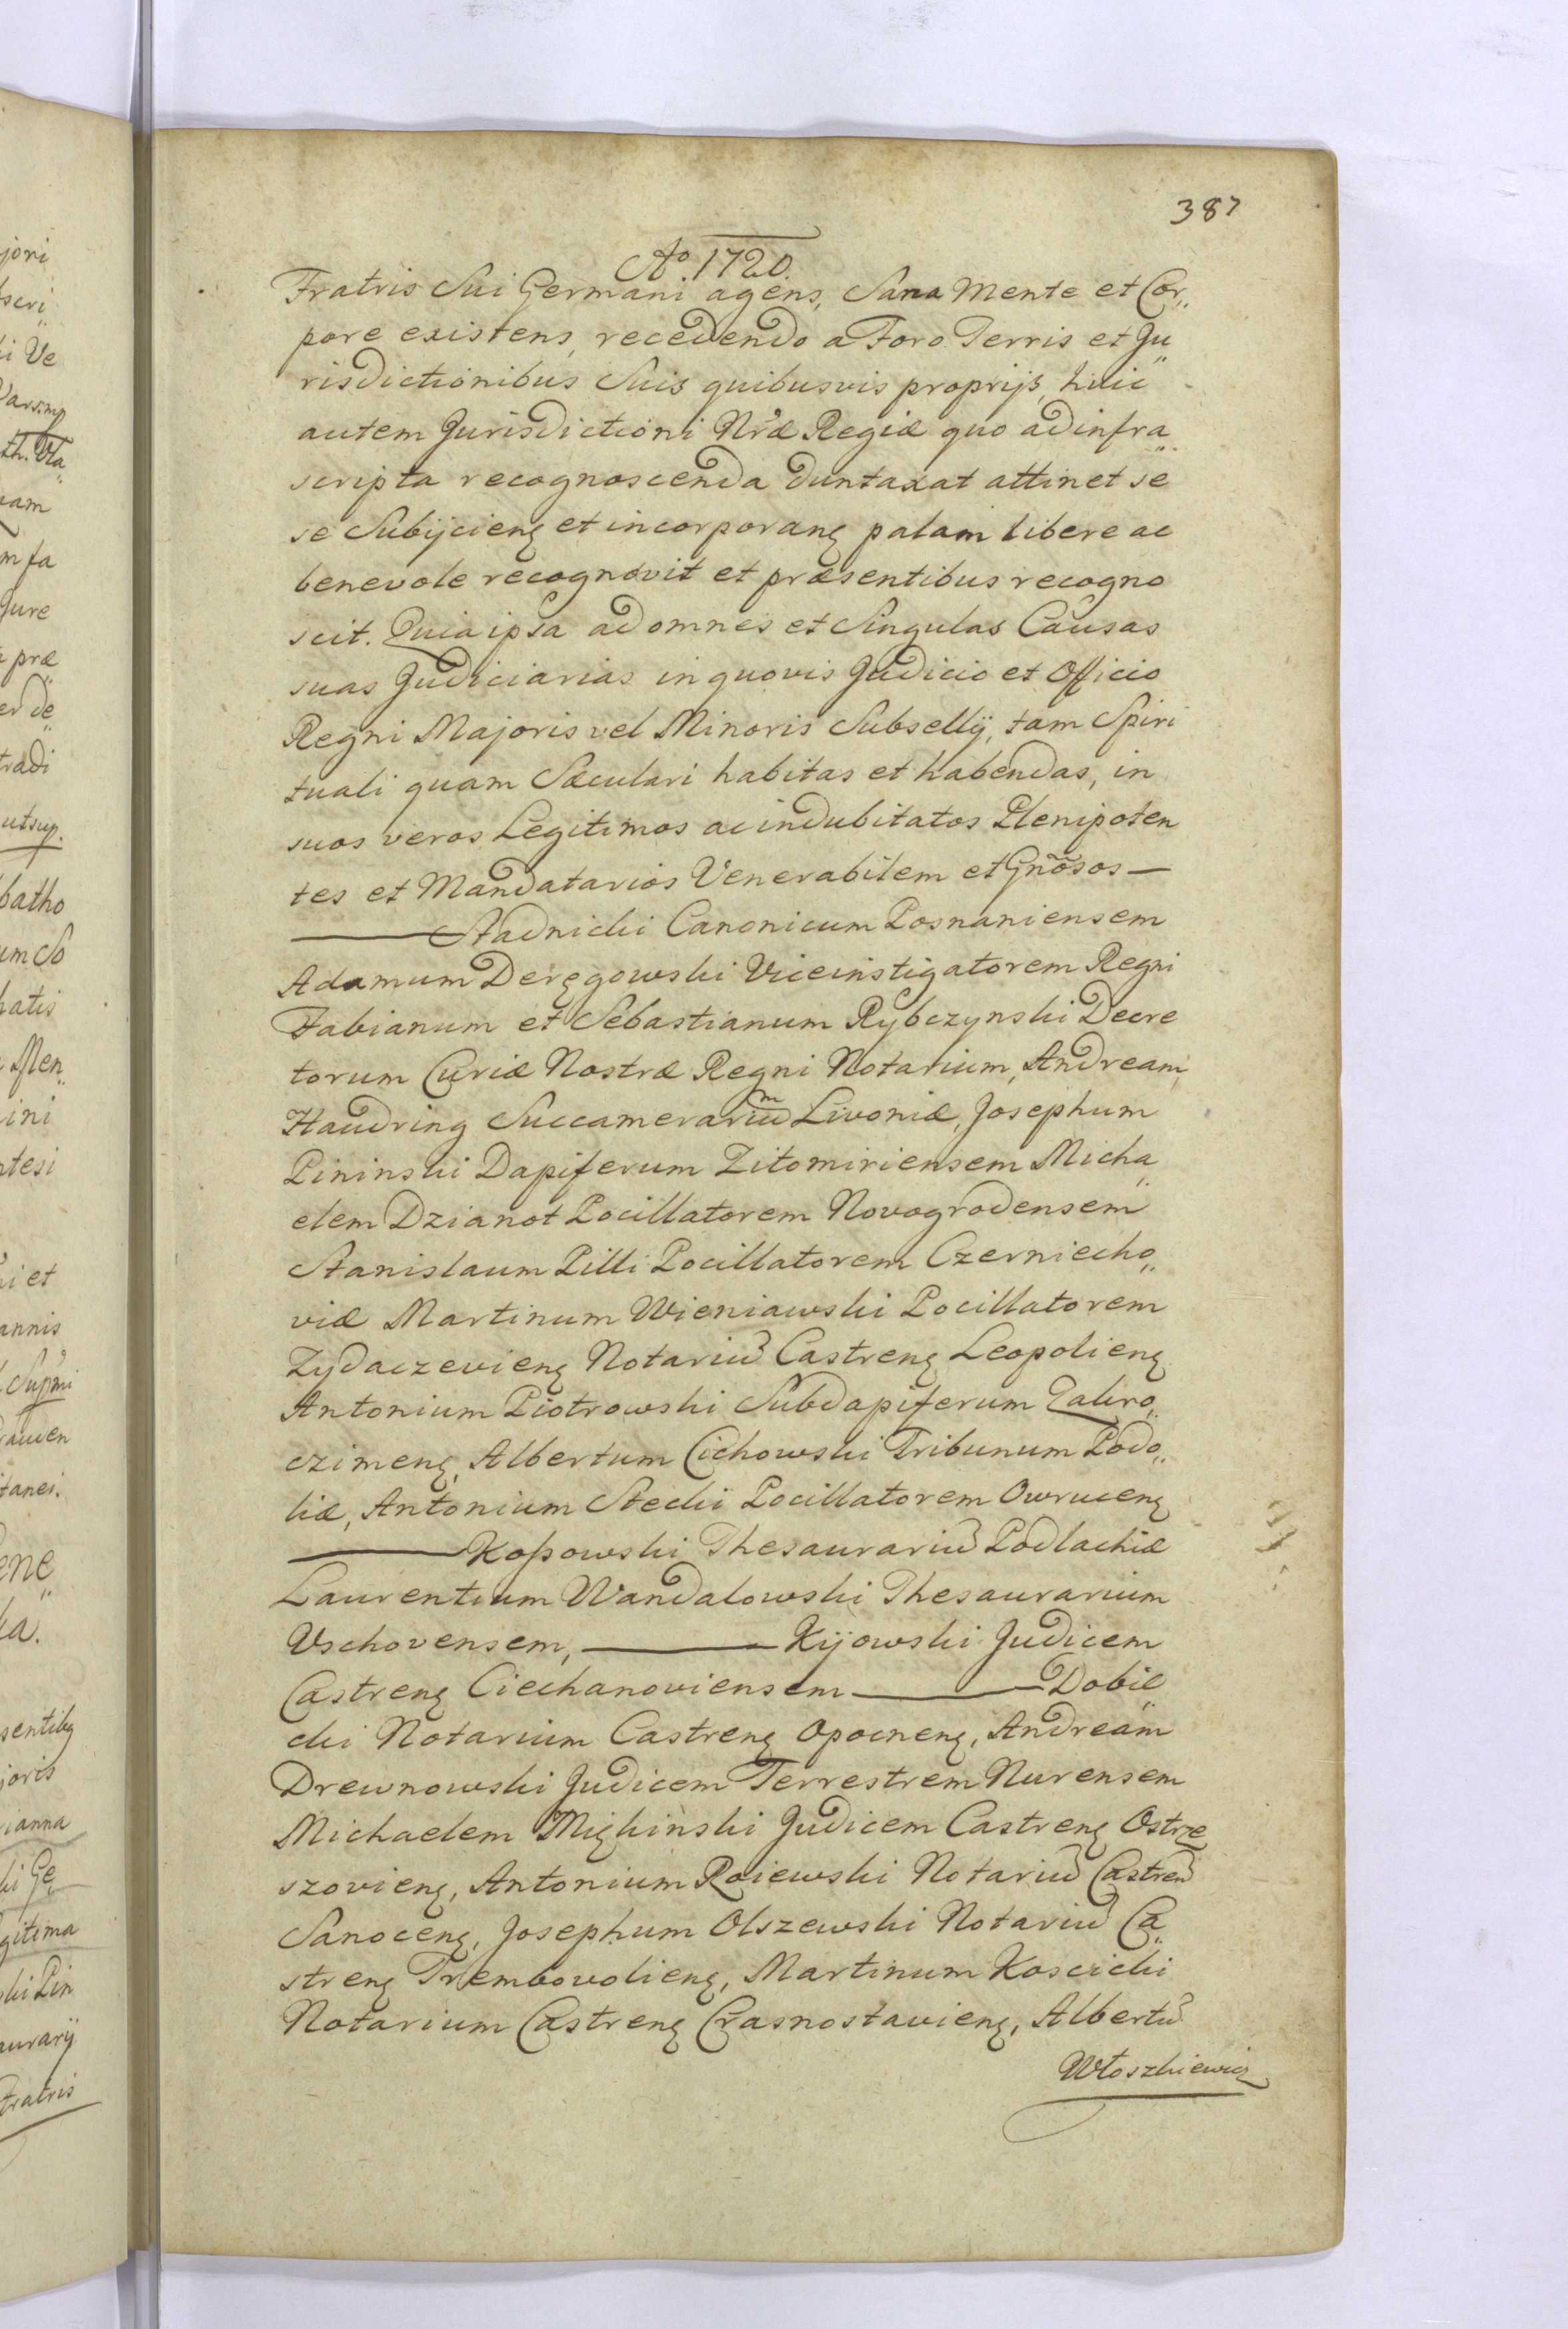 387
Aᵒ. 1720.
Fratris Sui Germani agens, Sana Mente et Cor„
pore existens, recedendo a Foro Terris et Ju„
risdictionibus Suis quibusvis proprijs, huic
autem Jurisdictioni Nræ Regiæ quo ad infra„
scripta recognoscenda duntaxat attinet se
se Subijcienꝫ et incorporanꝫ palam libere ac
benevole recognovit et præsentibus recogno
scit. Quia ipsa ad omnes et Singulas Causas
suas Judiciarias in quovis Judicio et Officio
Regni Majoris vel Minoris Subsellij, tam Spiri
tuali quam Sæculari habitas et habendas, in
suos veros Legitimos ac indubitatos Plenipoten
tes et Mandatarios Venerabilem et Gñosos —
—— Stadnicki Canonicum Posnaniensem
Adamum Deręgowski Viceinstigatorem Regni
Fabianum et Sebastianum Rybczynski Decre
torum Curiæ Nostræ Regni Notarium, Andream,
Haudring Succamerariūm Livoniæ, Josephum
Pininski Dapiferum Zitomiriensem Micha„
elem Dzianot Pocillatorem Novogrodensem
Stanislaum Pilli Pocillatorem Czerniecho„
viæ Martinum Wieniawski Pocillatorem
Zydaczevienꝫ Notariū Castrenꝫ Leopolienꝫ
Antonium Piotrowski Subdapiferum Zakro„
czimenꝫ, Albertum Cichowski Tribunum Podo„
liæ, Antonium Stecki Pocillatorem Owrucenꝫ
—— Koßowski Thesaurariū Podlachiæ
Laurentium Wandalowski Thesaurarium
Vschovensem, —— Kijowski Judicem
Castrenꝫ Ciechanoviensem —— Dobie„
cki Notarium Castrenꝫ Opocnenꝫ, Andream
Drewnowski Judicem Terrestrem Nurensem
Michaelem Mięhinski Judicem Castrenꝫ Ostrze
szovienꝫ, Antonium Roiewski Notariū Castreū
Sanocenꝫ, Josephum Olszewski Notariū Ca„
strenꝫ Trembovolienꝫ, Martinum Koscicki
Notarium Castrenꝫ Crasnostavienꝫ, Albertū
Włoszkiewicz